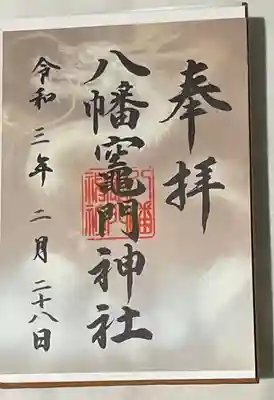 奉拝
八幡竈門神社
令和三年二月二十八日